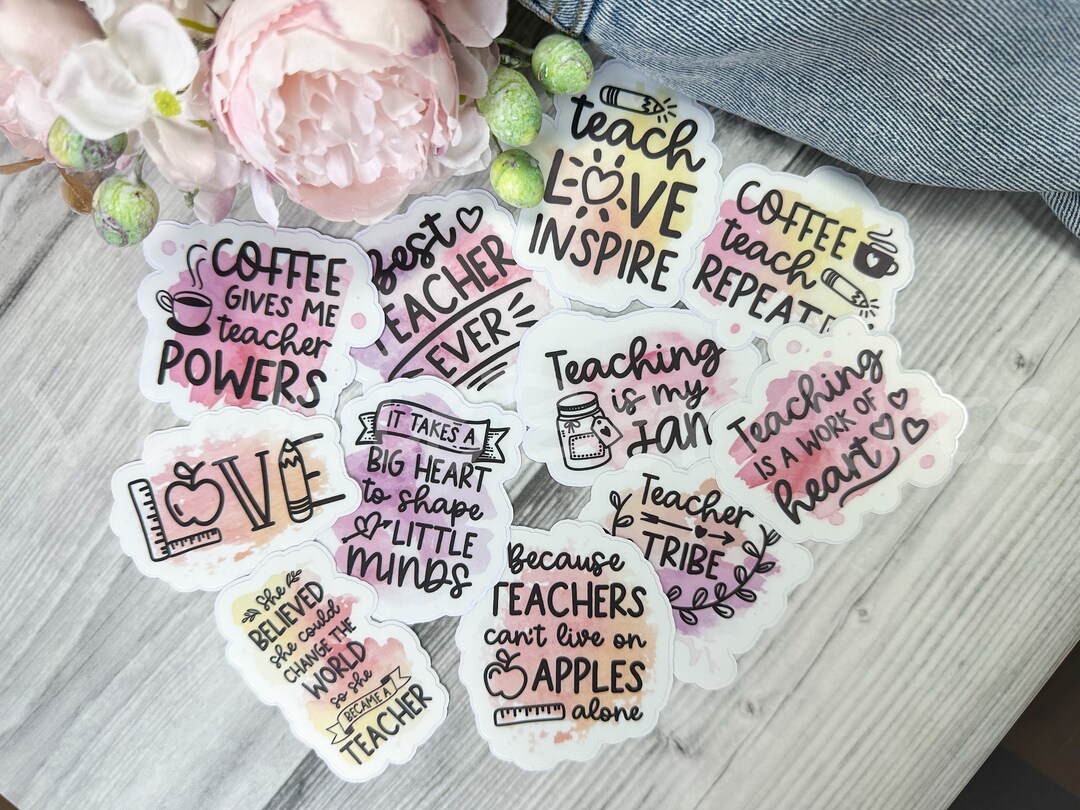 teach
LOVE
INSPIRE
COFFEE
teach
REPEAT
COFFEE
GIVES ME
teacher
POWERS
Best
TEACHER
EVER
Teaching
is my
JAM
Teaching
IS A WORK OF
heart
LOVE
IT TAKES A
BIG HEART
to shape
LITTLE
MINDS
Teacher
TRIBE
Because
TEACHERS
can't live on
APPLES
alone
She
BELIEVED
she could
CHANGE THE
WORLD
so she
BECAME A
TEACHER